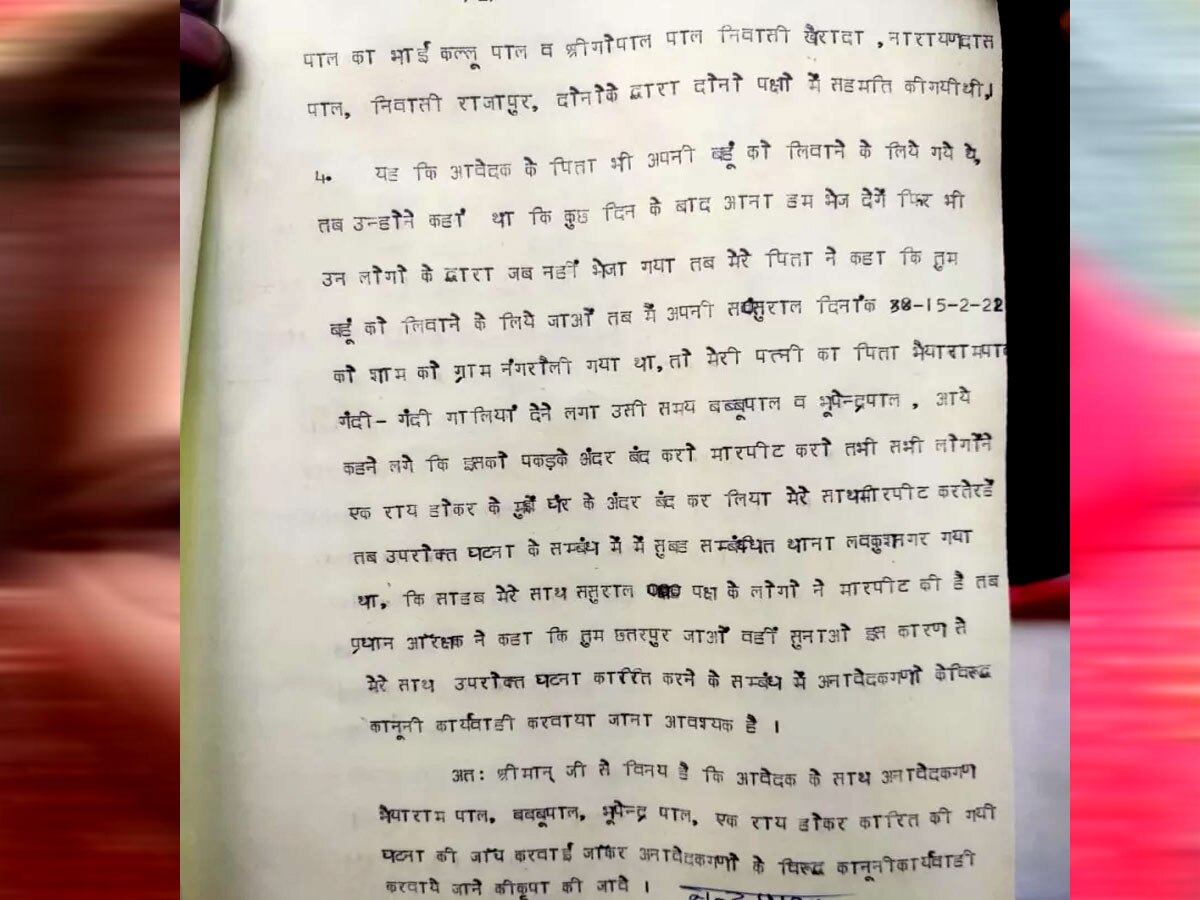 पाल का भाई कल्लू पाल व श्रीगोपाल पाल निवासी खैरादा ,नारायणदास
पाल, निवासी राजापुर, दोनोके द्वारा दोनो पक्षो में सहमति कीगयीथी।
4. यह कि आवेदक के पिता भी अपनी बहूं को लिवाने के लिये गये थे,
तब उन्होने कहां था कि कुछ दिन के बाद आना हम भेज देगें फिर भी
उन लोगो के द्वारा जब नहीं भेजा गया तब मेरे पिता ने कहा कि तुम
बहूं को लिवाने के लिये जाओं तब मैं अपनी ससुराल दिनांक 15-2-22
को शाम को ग्राम नंगरौली गया था,तो मेरी पत्नी का पिता भैयारामपाल
गंदी- गंदी गालियां देने लगा उसी समय बब्बूपाल व भूपेन्द्रपाल , आये
कहने लगे कि इसको पकड़के अंदर बंद करो मारपीट करो तभी सभी लोगोंने
एक राय होकर के मुझे घर के अंदर बंद कर लिया मेरे साथमारपीट करतेरहें
तब उपरोक्त घटना के सम्बंध में में सुबह सम्बंधित थाना लवकुशनगर गया
था, कि साहब मेरे साथ ससुराल पक्ष के लोगो ने मारपीट की है तब
प्रधान आरक्षक ने कहा कि तुम छतरपुर जाओं वहीं सुनाओ इस कारण से
मेरे साथ उपरोक्त घटना कारित करने के सम्बंध में अनावेदकगणो केविरूद्ध
कानूनी कार्यवाही करवाया जाना आवश्यक है ।
अतः श्रीमान् जी से विनय है कि आवेदक के साथ अनावेदकगण
भैयाराम पाल, बबबूपाल, भूपेन्द्र पाल, एक राय होकर कारित की गयी
घटना की जांच करवाई जाकर अनावेदकगणो के विरूद्ध कानूनीकार्यवाही
करवाये जाने कीकृपा की जावे ।